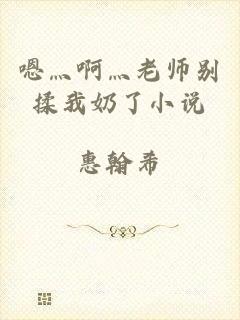 嗯灬啊灬老师别
揉我奶了小说
惠翰希